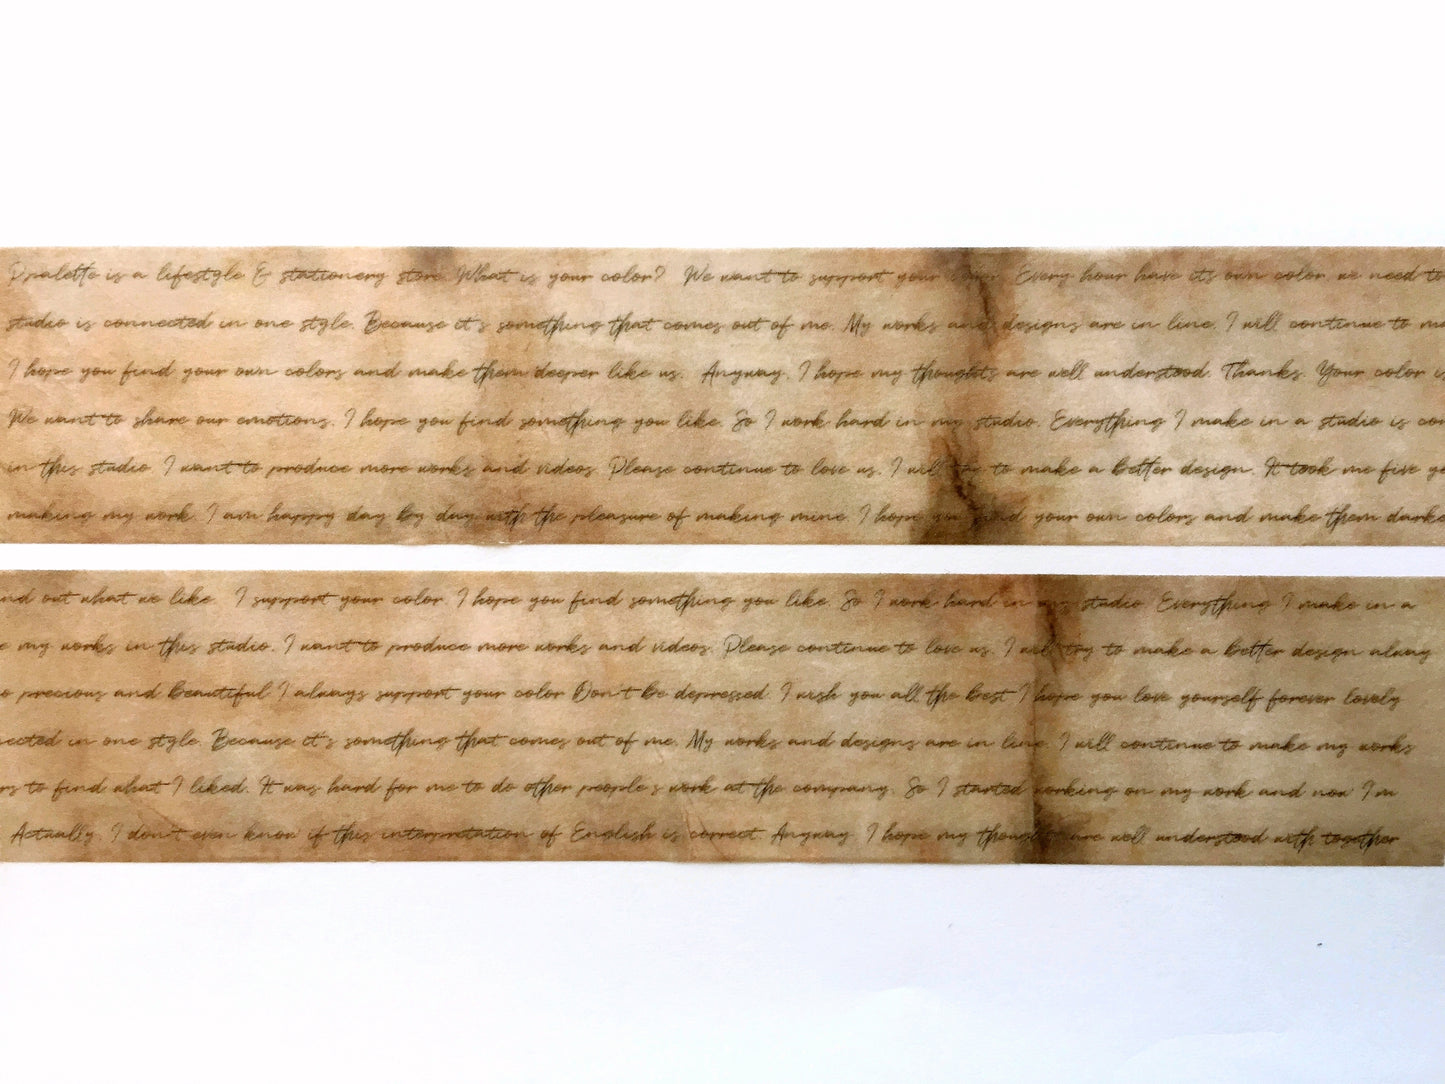 Ppalette is a lifestyle & stationery store. What is your color? We want to support your color. Every hour have its own color we need to
studio is connected in one style. Because it's something that comes out of me. My works and designs are in line. I will continue to
I hope you find your own colors and make them deeper like us. Anyway, I hope my thoughts are well understood. Thanks. Your color
We want to share our emotions. I hope you find something you like. So I work hard in my studio. Everything I make in a studio is
in this studio. I want to produce more works and videos. Please continue to love us. I will try to make a better design. It took me five
making my work. I am happy day by day with the pleasure of making mine. I hope you find your own colors and make them
out what we like. I support your color. I hope you find something you like. So I work hard in my studio. Everything I make in a
my works in this studio. I want to produce more works and videos. Please continue to love us. I will try to make a better design alway
precious and beautiful I always support your color Don't be depressed. I wish you all the best I hope you love yourself forever lovely
in one style. Because it's something that comes out of me. My works and designs are in line. I will continue to make my works
to find what I liked. It was hard for me to do other people's work at the company. So I started working on my work and now I'm
Actually, I don't even know if this interpretation of English is correct. Anyway, I hope my thoughts are well understood with together